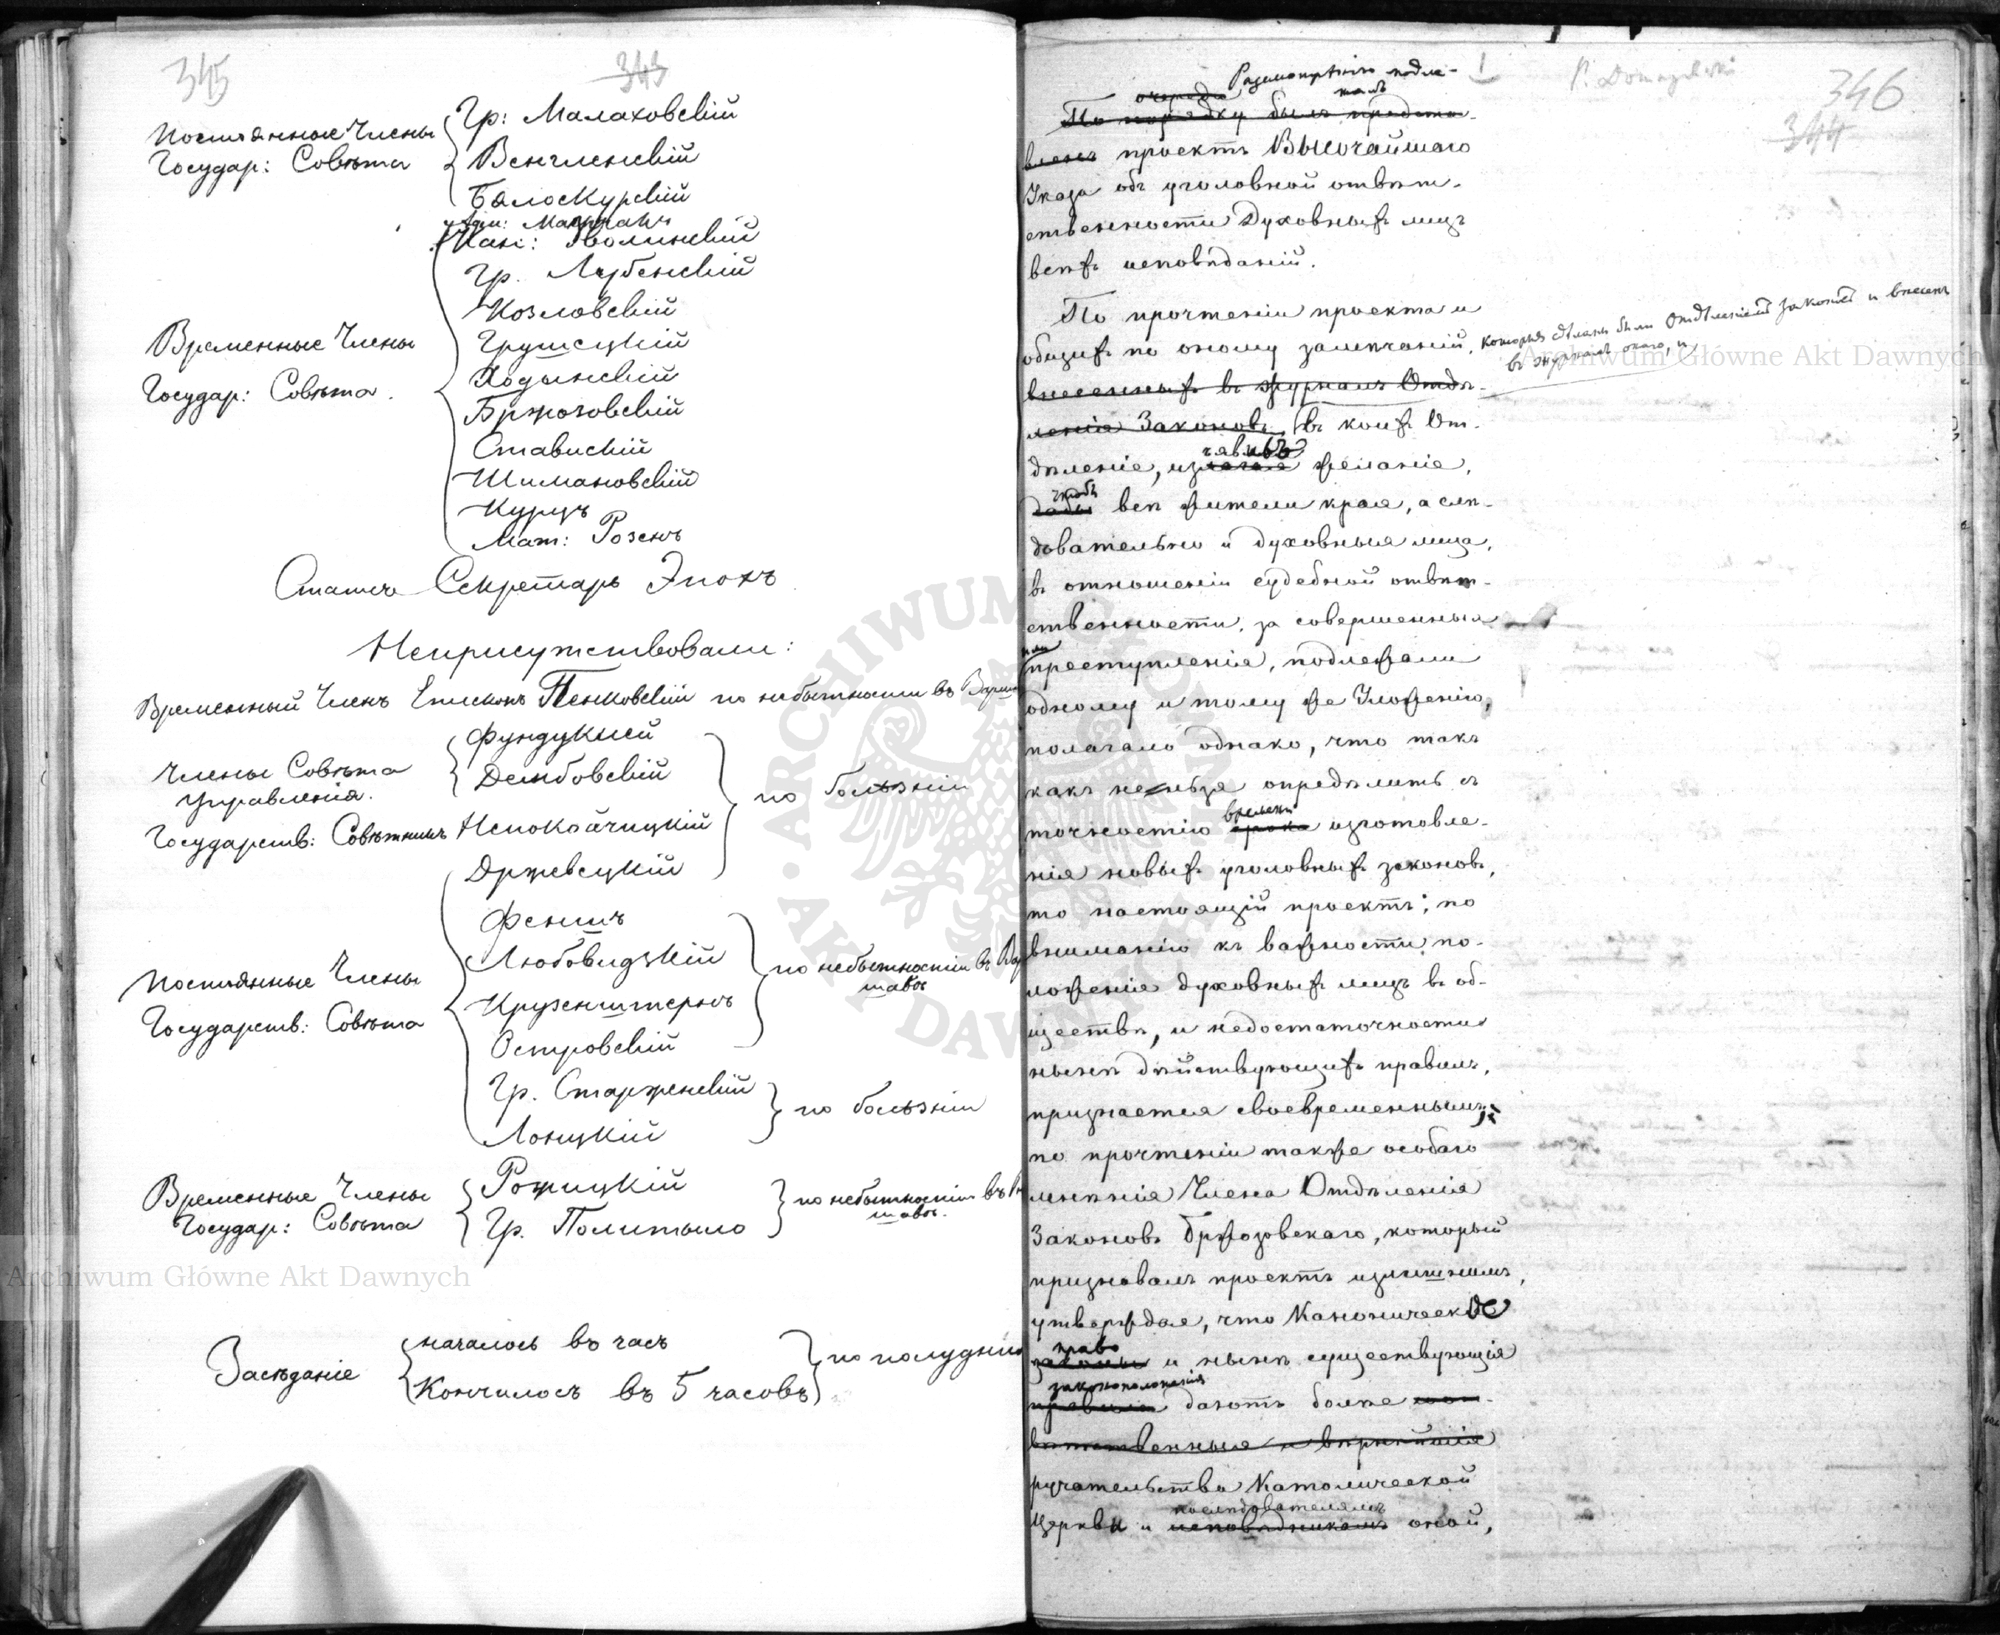 345
343
Постоянные Члены
Государ: Совѣта
Гр: Малаховскій
Венгленскій
Бялоскурскій
Кан: Зволинскій
Гр. Лубенскій
Козловскій
Грушецкій
Ходынскій
Бржозовскій
Ставискій
Шимановскій
Курцъ
Мат: Розенъ
Временные Члены
Государ: Совѣта.
Статсъ Секретарь Энохъ
Неприсутствовали:
Временный Членъ Епископъ Пенковскій по небытности въ Варша
Члены Совѣта
Управленія.
Фундуклей
Дембовскій
Государств: Совѣтникъ Непокойчицкій
по болѣзни
Држевецкій
Феншъ
Любовидзкій
Крузенштернъ
Островскій
Гр. Старженскій
Лонцкій
Постоянные Члены
Государств: Совѣта
по небытности въ Вар
шавѣ
по болѣзни
Временные Члены
Государ: Совѣта
Рожицкій
Гр. Политыло
по небытности въ
шавѣ.
Засѣданіе
началось въ часъ
Кончилось въ 5 часовъ
по полудни
Archiwum Główne Akt Dawnych
ARCHIWUM GŁÓWNE AKT DAWNYCH
1
346
344
Разсмотрѣнію подле-
По порядку былъ предста-
вленъ проектъ Высочайшаго
Указа объ уголовной отвѣт-
ственности Духовныхъ лицъ
всѣхъ исповѣданій.
По прочтеніи проекта и
общихъ по оному замѣчаній, которыя сдѣланы были Отдѣленіемъ Законовъ и внесены
въ журналъ онаго, и
внесенныхъ въ журналъ Отдѣ-
ленія Законовъ, въ коихъ От-
дѣленіе, изъявивъ желаніе,
чтобъ
дабы всѣ жители края, а слѣ-
довательно и духовныя лица,
въ отношеніи судебной отвѣт-
ственности, за совершенныя
ими
преступленія, подлежали
одному и тому же Уложенію,
полагало однако, что такъ
какъ нельзя опредѣлить съ
времени
точностію срока изготовле-
нія новыхъ уголовныхъ законовъ,
то настоящій проектъ, по
вниманію къ важности по-
ложенія духовныхъ лицъ въ об-
ществѣ, и недостаточности
нынѣ дѣйствующихъ правилъ,
признается своевременнымъ;
по прочтеніи также особаго
мнѣнія Члена Отдѣленія
Законовъ Бржозовскаго, который
признавалъ проектъ излишнимъ,
утверждая, что Каноническое
право
законы и нынѣ существующія
законоположенія
правила даютъ болѣе
вѣтственныя и вѣрнѣйшія
ручательства Католической
послѣдователямъ
Церкви и исповѣдникамъ оной,
Archiwum Główne Akt Dawnych